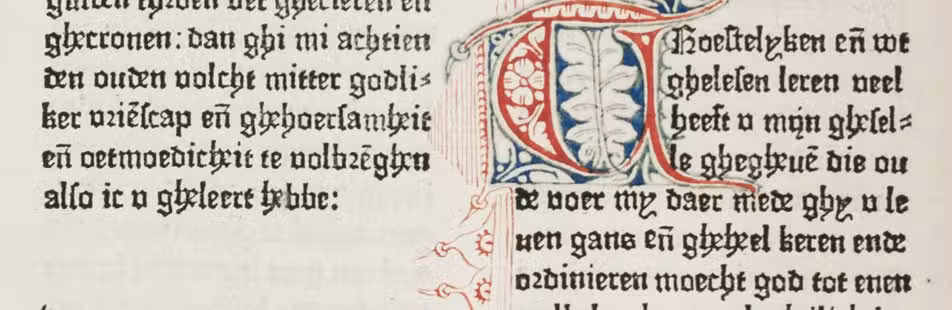 ghecronen: dan ghi mi achtien
den ouden volcht mitter godli⸗
ker vriēscap eñ ghehoersamheit
eñ oetmoedicheit te volbrēghen
also ic v gheleert hebbe:
Troestelyken eñ wt
ghelesen leren veel
heeft v mijn ghesel⸗
le ghegheuē die ou
de voer my daer mede ghy v le
uen gans eñ gheheel keren ende
ordinieren moecht god tot enen